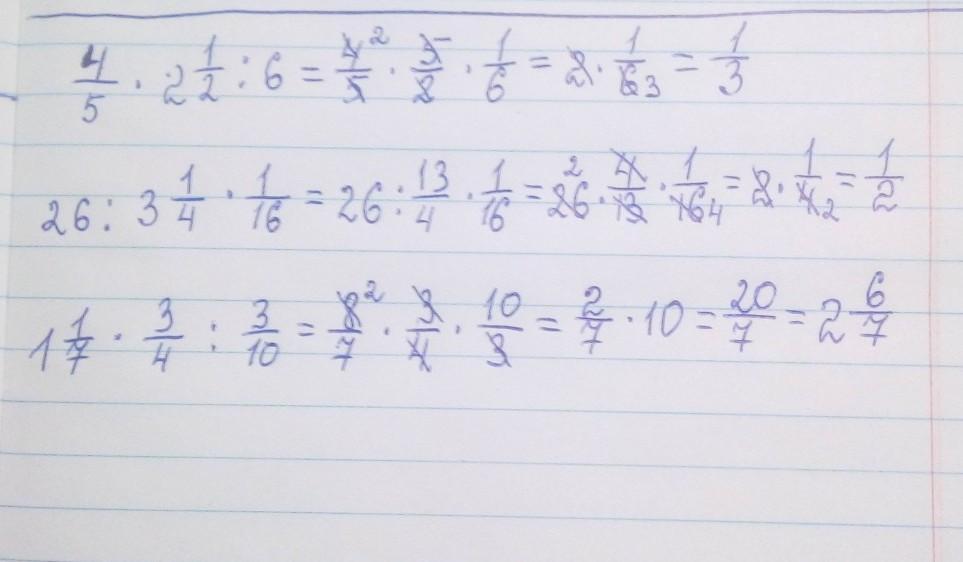 4/5 · 2 1/2 : 6 = 4/5 ² · 5/2 · 1/6 = 2 · 1/6 3 = 1/3
26 : 3 1/4 · 1/16 = 26 : 13/4 · 1/16 = ² 26 · 4/13 · 1/16 4 = 2 · 1/4 2 = 1/2
1 1/7 · 3/4 : 3/10 = 8 ²/7 · 3/4 · 10/3 = 2/7 · 10 = 20/7 = 2 6/7